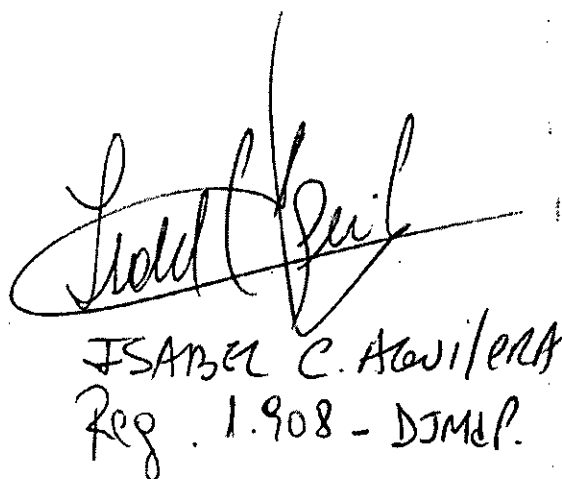 ISABEL C. AGUilERA
Reg. 1.908 - DJMdP.